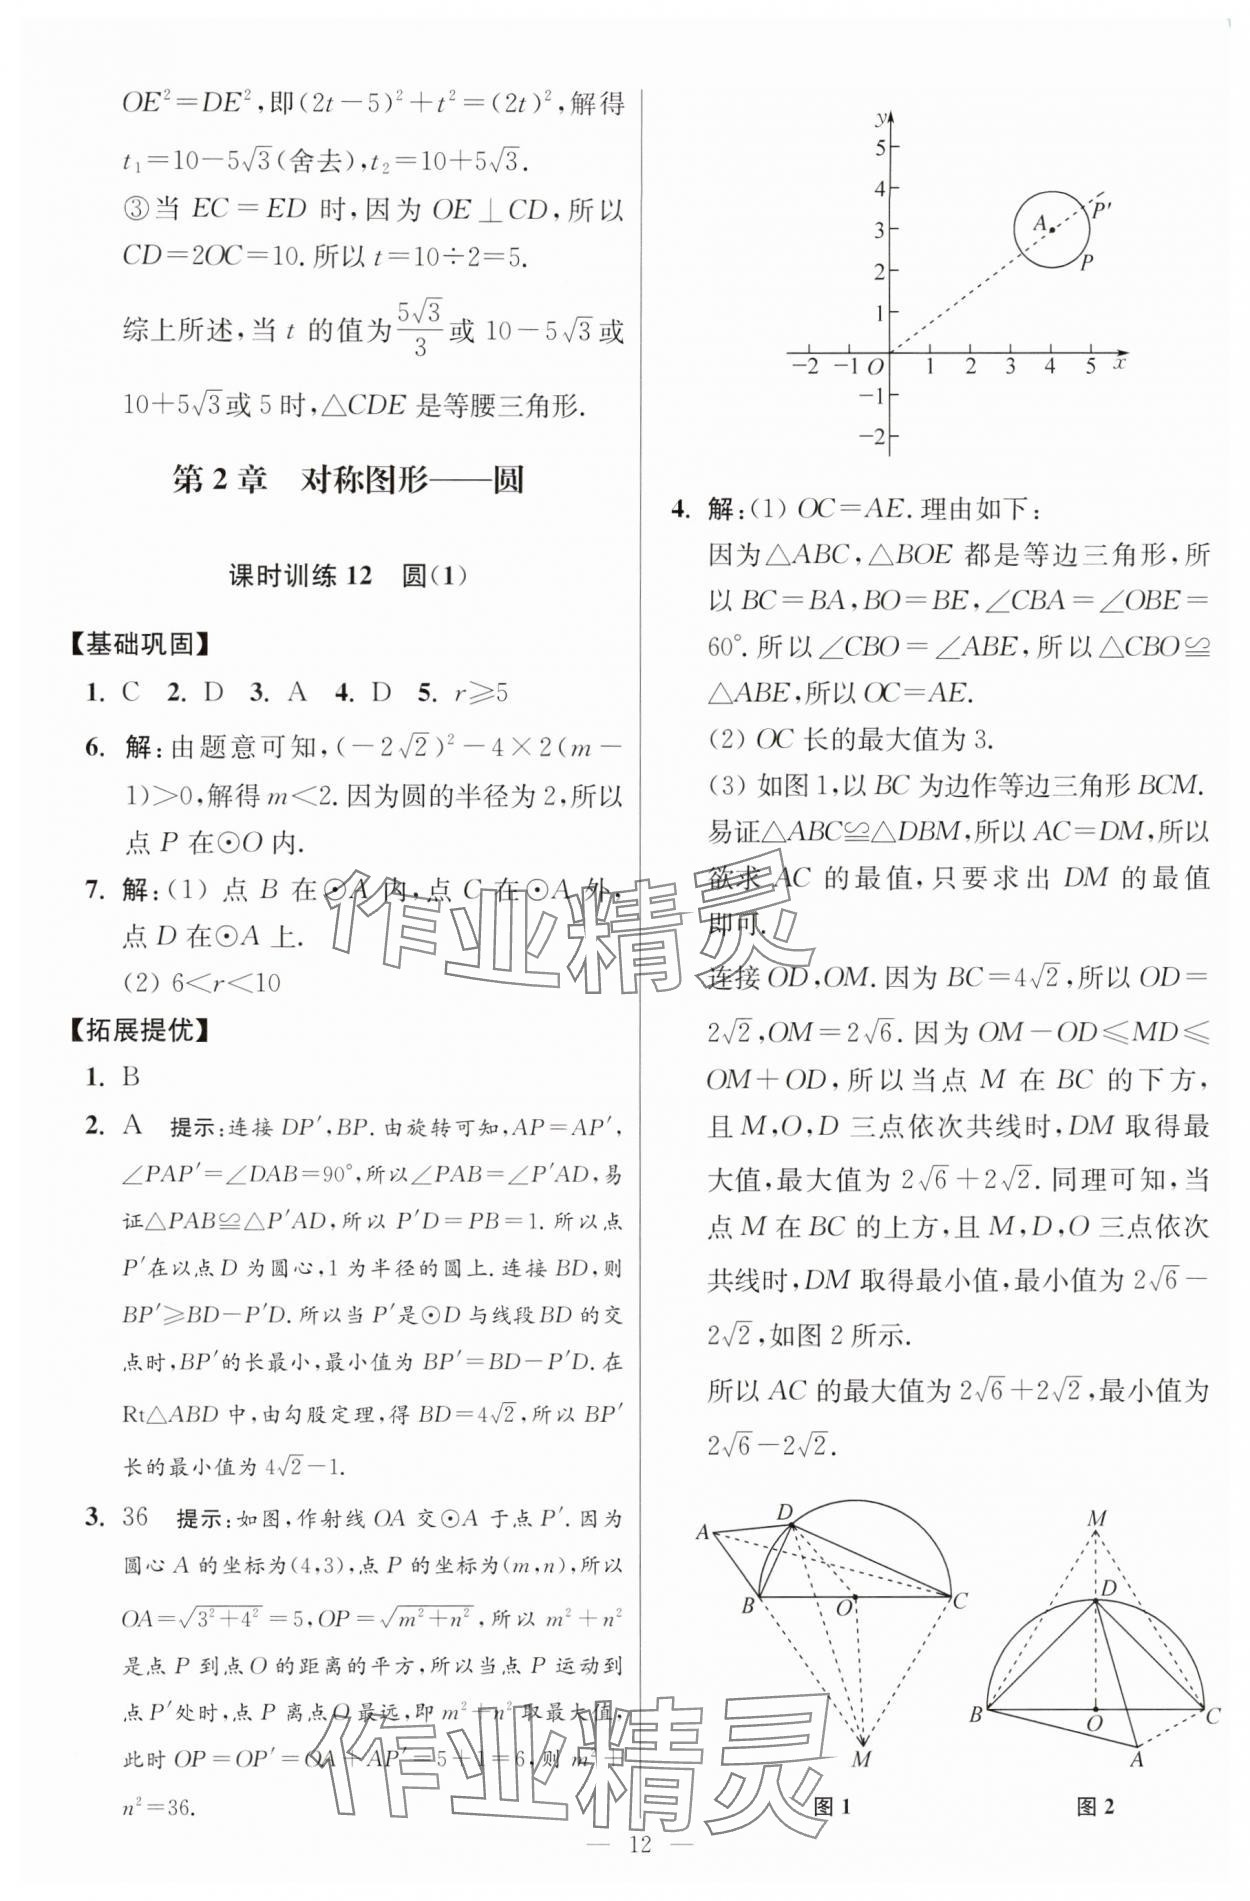 OE²=DE²,即(2t-5)²+t²=(2t)²,解得
t₁=10-5√3(舍去),t₂=10+5√3.
③当 EC=ED 时,因为 OE⊥CD,所以
CD=2OC=10.所以 t=10÷2=5.
综上所述,当 t 的值为5√3/3或 10-5√3或
10+5√3或 5 时,△CDE 是等腰三角形.
第 2 章 对称图形——圆
课时训练 12 圆(1)
【基础巩固】
1. C 2. D 3. A 4. D 5. r≥5
6. 解:由题意可知,(-2√2)²-4×2(m-
1)>0,解得 m<2.因为圆的半径为 2,所以
点 P 在⊙O 内.
7. 解:(1) 点 B 在⊙A 内,点 C 在⊙A 外,
点 D 在⊙A 上.
(2) 6<r<10
【拓展提优】
1. B
2. A 提示:连接 DP′,BP.由旋转可知,AP=AP′,
∠PAP′=∠DAB=90°,所以∠PAB=∠P′AD,易
证△PAB≌△P′AD,所以 P′D=PB=1.所以点
P′在以点 D 为圆心,1 为半径的圆上.连接 BD,则
BP′≥BD-P′D.所以当 P′是⊙D 与线段 BD 的交
点时,BP′的长最小,最小值为 BP′=BD-P′D.在
Rt△ABD 中,由勾股定理,得 BD=4√2,所以 BP′
长的最小值为 4√2-1.
3. 36 提示:如图,作射线 OA 交⊙A 于点 P′.因为
圆心 A 的坐标为(4,3),点 P 的坐标为(m,n),所以
OA=√(3²+4²)=5,OP=√(m²+n²),所以 m²+n²
是点 P 到点 O 的距离的平方,所以当点 P 运动到
点 P′处时,点 P 离点 O 最远,即 m²+n²取最大值,
此时 OP=OP′=OA+AP′=5+1=6,则 m²+
n²=36.
y
5
4
3
2
1
-2 -1 O 1 2 3 4 5 x
-1
-2
A
P′
P
4. 解:(1) OC=AE.理由如下:
因为△ABC,△BOE 都是等边三角形,所
以 BC=BA,BO=BE,∠CBA=∠OBE=
60°.所以∠CBO=∠ABE,所以△CBO≌
△ABE,所以 OC=AE.
(2) OC 长的最大值为 3.
(3) 如图 1,以 BC 为边作等边三角形 BCM.
易证△ABC≌△DBM,所以 AC=DM,所以
欲求 AC 的最值,只要求出 DM 的最值
即可.
连接 OD,OM.因为 BC=4√2,所以 OD=
2√2,OM=2√6.因为 OM-OD≤MD≤
OM+OD,所以当点 M 在 BC 的下方,
且 M,O,D 三点依次共线时,DM 取得最
大值,最大值为 2√6+2√2.同理可知,当
点 M 在 BC 的上方,且 M,D,O 三点依次
共线时,DM 取得最小值,最小值为 2√6-
2√2,如图 2 所示.
所以 AC 的最大值为 2√6+2√2,最小值为
2√6-2√2.
A D B O C M
图 1
M D B O C A
图 2
作业精灵
作业精灵
— 12 —